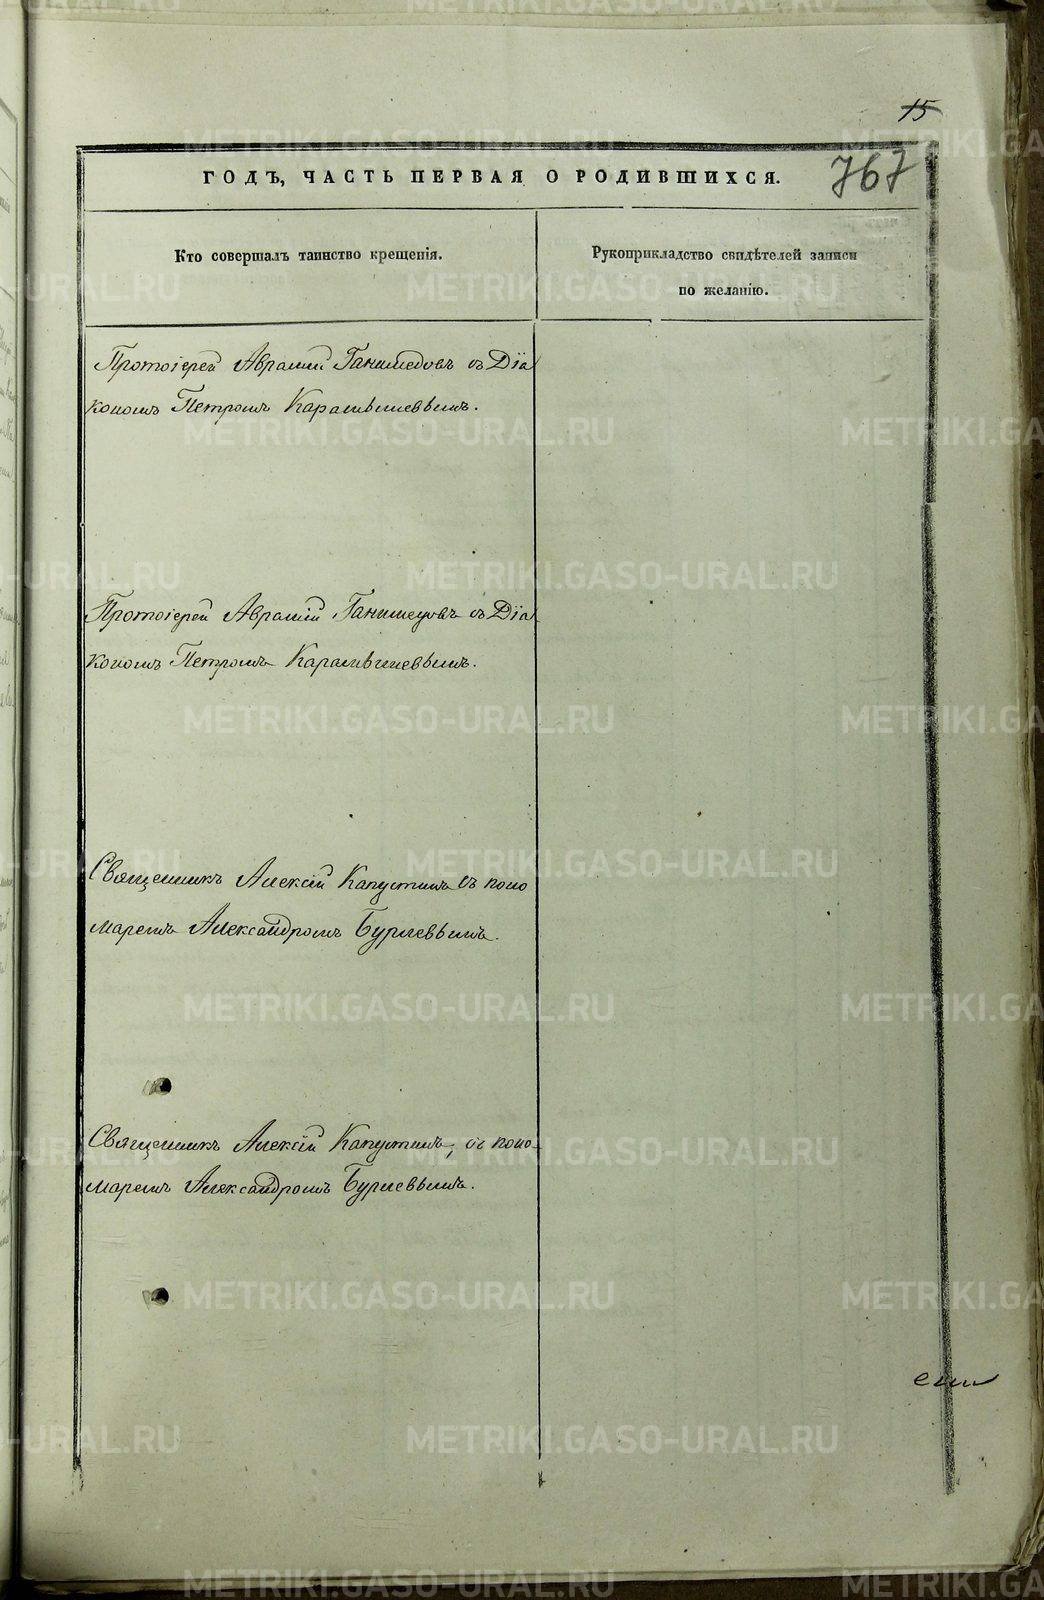 15
767
ГОДЪ, ЧАСТЬ ПЕРВАЯ О РОДИВШИХСЯ.
Кто совершалъ таинство крещенія.
Рукоприкладство свидѣтелей записи
по желанію.
Протоіерей Аврамій Ганимедовъ съ Діа
кономъ Петромъ Карамышевымъ.
Протоіерей Аврамій Ганимедовъ съ Діа
кономъ Петромъ Карамышевымъ.
Священникъ Алексій Капустинъ съ поно
маремъ Александромъ Бурлевымъ.
Священникъ Алексій Капустинъ, съ поно-
маремъ Александромъ Бурлевымъ.
METRIKI.GASO-URAL.RU